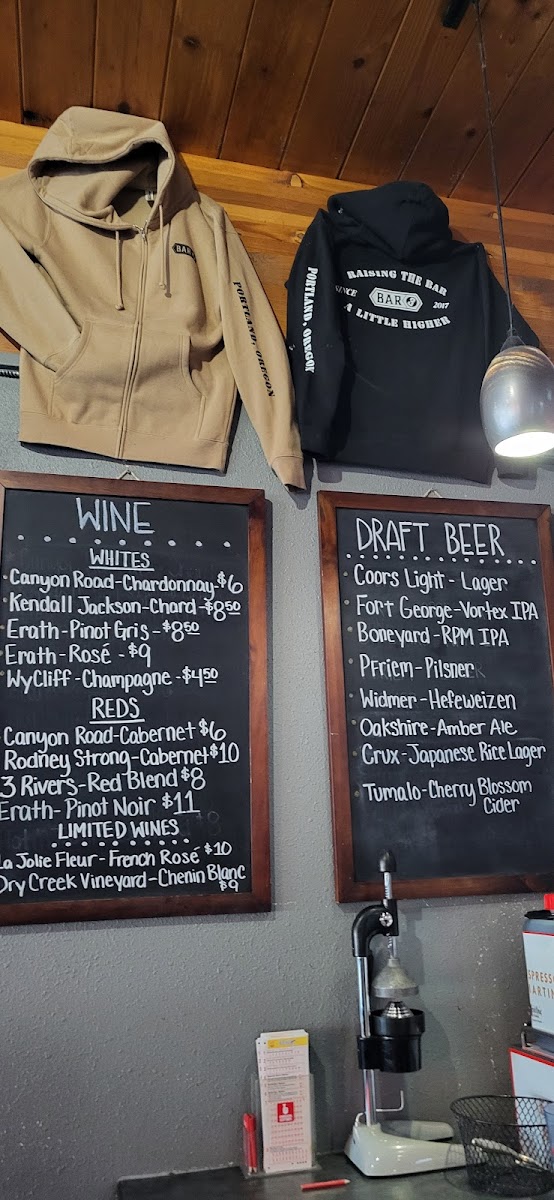 BAR
PORTLAND, OREGON
PORTLAND, OREGON
RAISING THE BAR
SINCE BAR 2017
A LITTLE HIGHER
WINE
WHITES
Canyon Road-Chardonnay-$6
Kendall Jackson-Chard-$850
Erath-Pinot Gris-$8.50
Erath-Rosé-$9
WyCliff-Champagne-$4.50
REDS
Canyon Road-Cabernet $6
Rodney Strong-Cabernet $10
3 Rivers-Red Blend $8
Erath-Pinot Noir $11
LIMITED WINES
La Jolie Fleur-French Rosé $10
Dry Creek Vineyard-Chenin Blanc
$9
DRAFT BEER
Coors Light-Lager
Fort George-Vortex IPA
Boneyard-RPM IPA
Pfriem-Pilsner
Widmer-Hefeweizen
Oakshire-Amber Ale
Crux-Japanese Rice Lager
Tumalo-Cherry Blossom
Cider